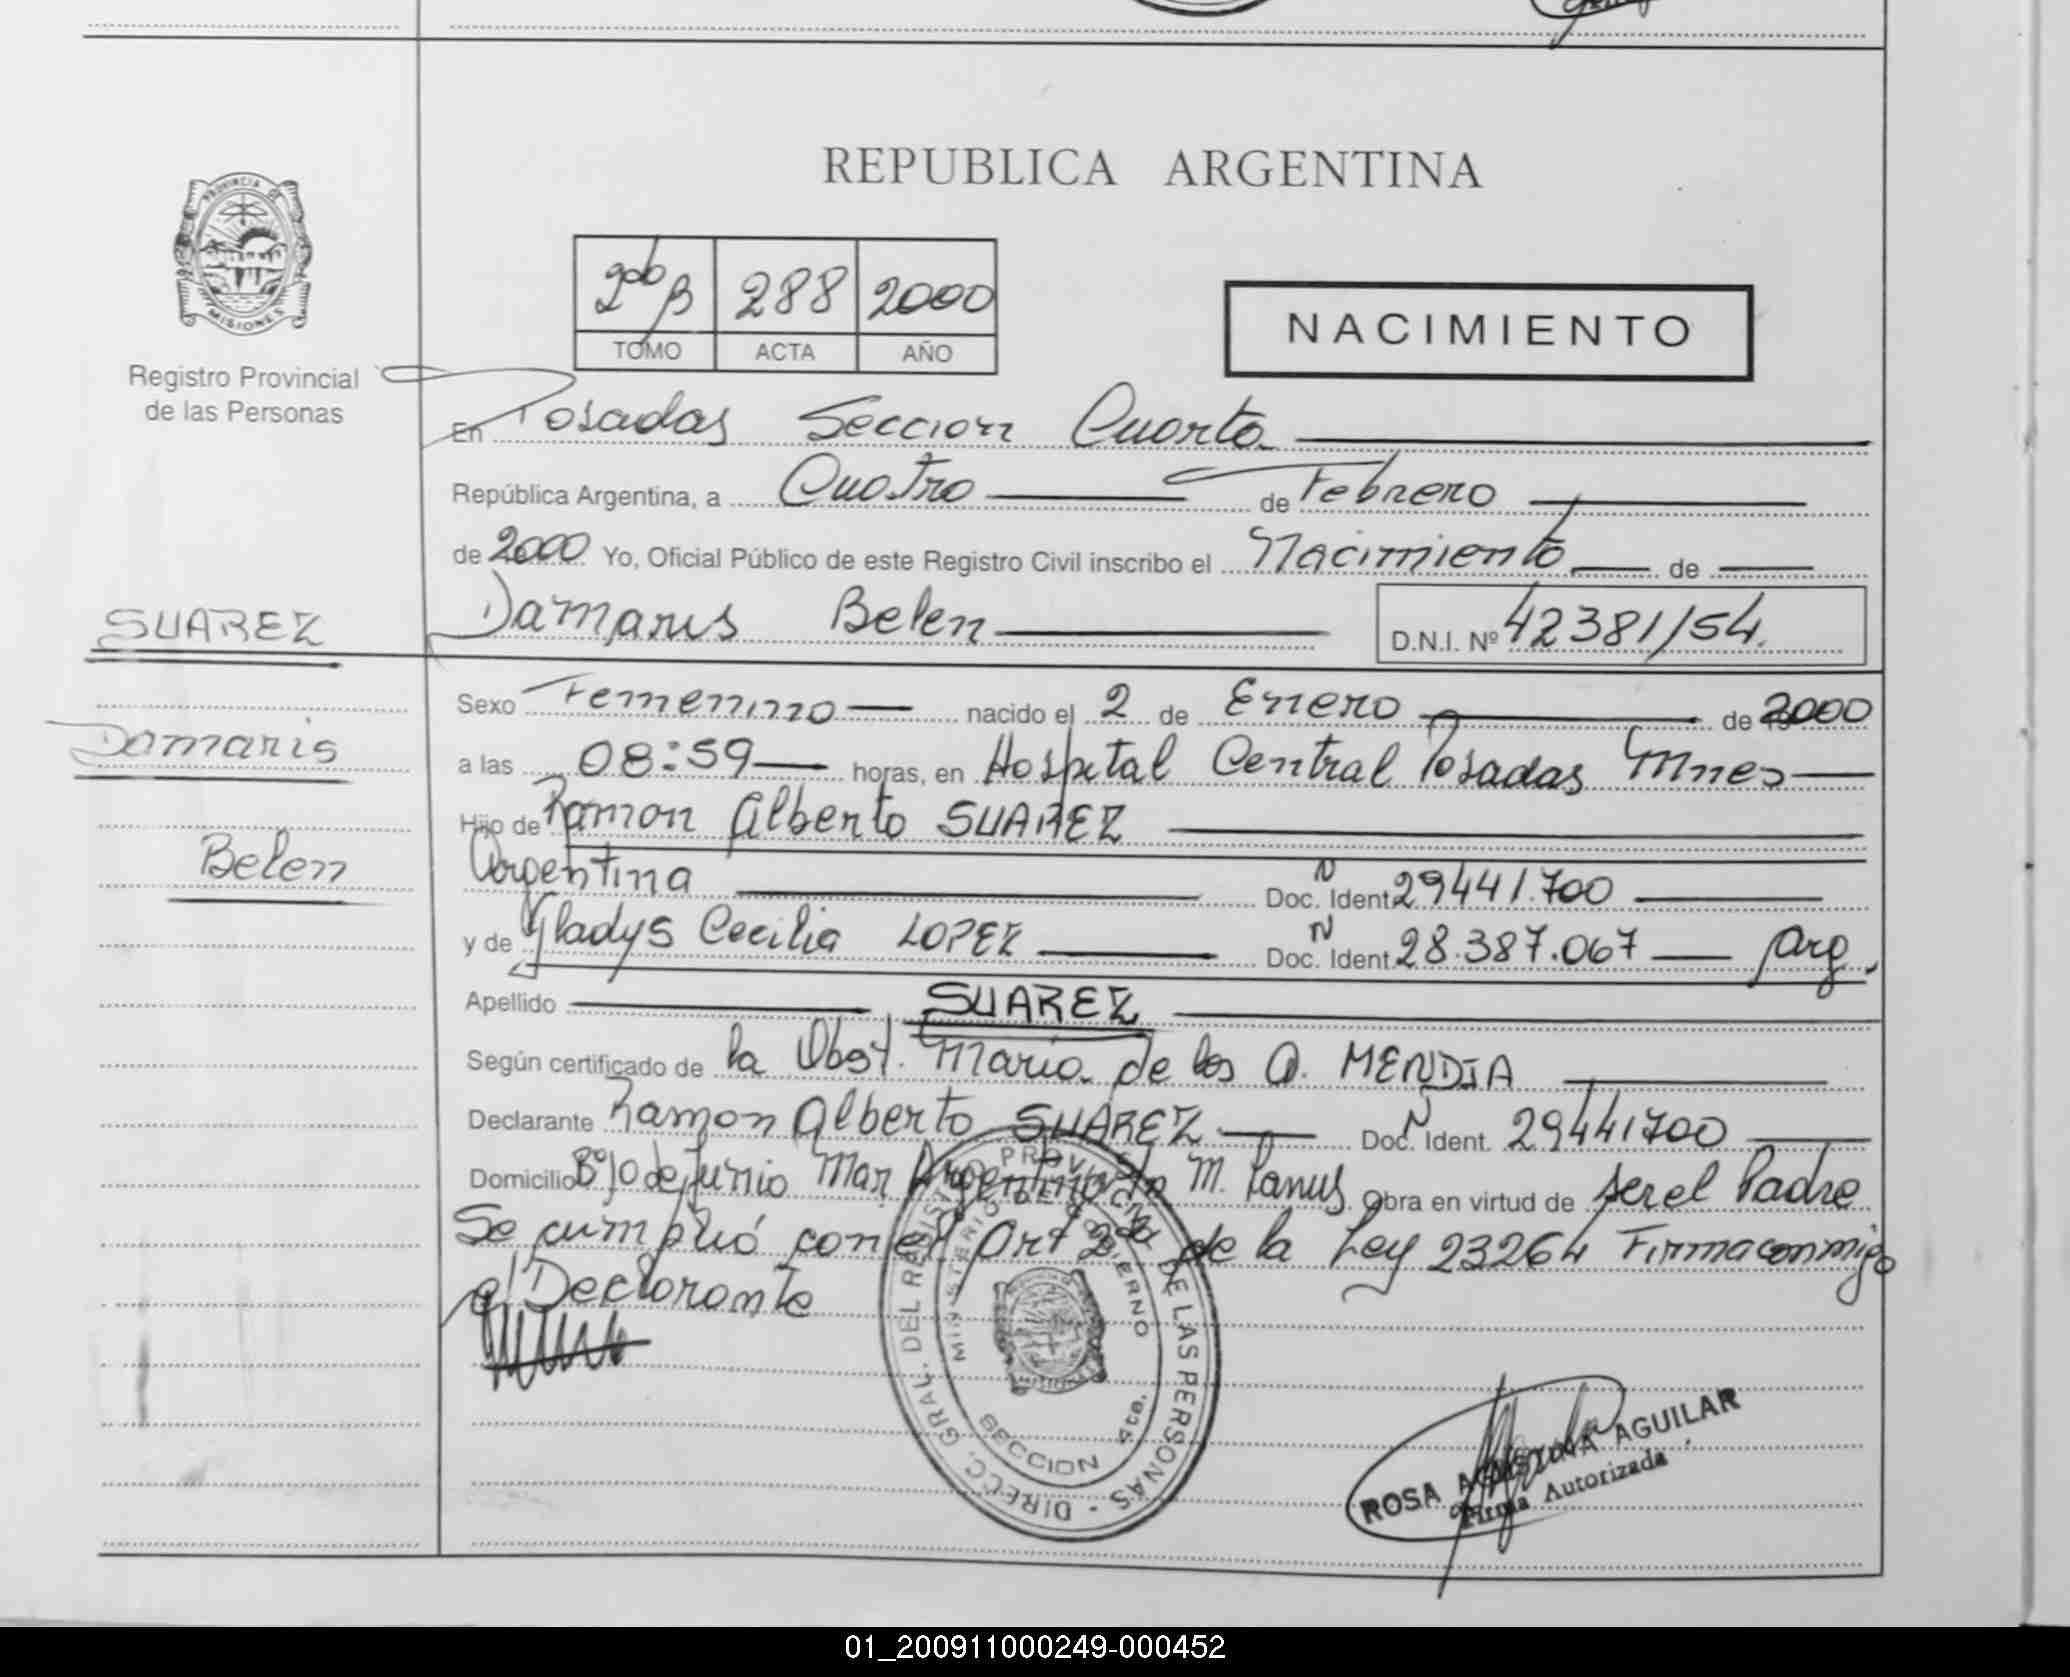 REPUBLICA ARGENTINA
PROVINCIA DE
MISIONES
Registro Provincial
de las Personas
2do B 288 2000
TOMO ACTA AÑO
NACIMIENTO
En Posadas Seccion Cuarta
República Argentina, a Cuatro de Febrero
de 2000 Yo, Oficial Público de este Registro Civil inscribo el Nacimiento de
Damaris Belen D.N.I. Nº 42381154.
SUAREZ
Damaris
Belen
Sexo Femenino nacido el 2 de Enero de 2000
a las 08:59 horas, en Hospital Central Posadas Mnes
Hijo de Ramon Alberto SUAREZ
Argentina Doc. Ident. N 29441.700
y de Gladys Cecilia LOPEZ Doc. Ident. N 28.387.067 Arg.
Apellido SUAREZ
Según certificado de la Obst. Maria de los A. MENDIA
Declarante Ramon Alberto SUAREZ Doc. Ident. N 29441700
Domicilio Bº 10 de Junio Mar Argentino M. Lanus Obra en virtud de ser el Padre
Se cumplió con el Art 2do de la Ley 23264 Firma conmigo
el Declarante
DIRECC. GRAL. DEL REGISTRO PROVINCIAL DE LAS PERSONAS
MINISTERIO DE GOBIERNO
SECCION 4ta.
ROSA AGUSTINA AGUILAR
Firma Autorizada
01_200911000249-000452